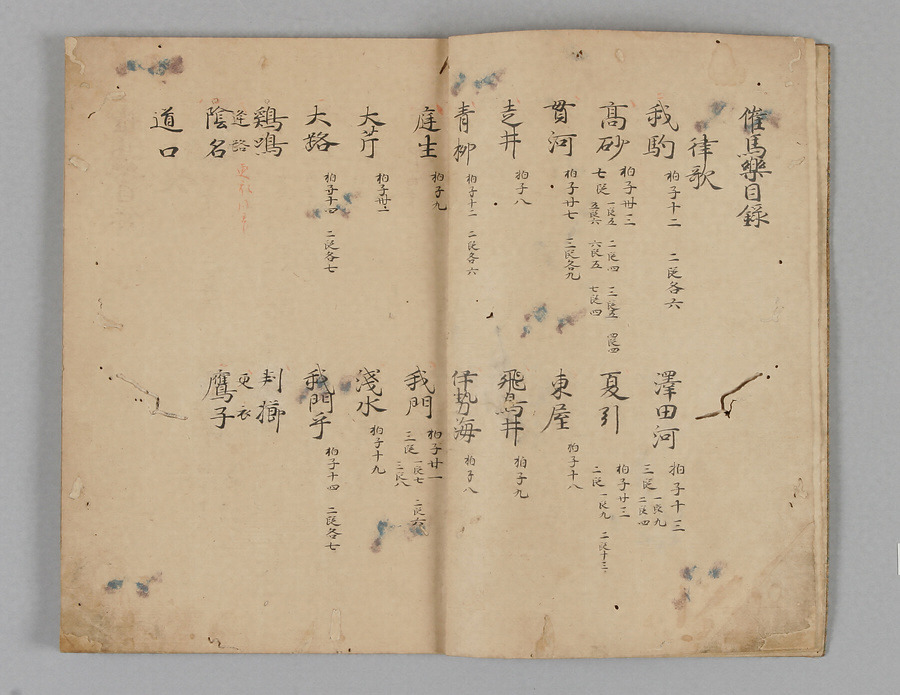 催馬樂目録
律歌
我駒 拍子十二 二段各六
澤田河 拍子十三 三段 一段九 二段四
高砂 拍子廿三 七段 一段五 二段四 三段五 四段四 五段六 六段五 七段四
夏引 拍子廿三 二段 一段九 二段十三
貫河 拍子廿七 三段各九
東屋 拍子十八
走井 拍子八
飛鳥井 拍子九
青柳 拍子十二 二段各六
伊勢海 拍子八
庭生 拍子九
我門 拍子廿一 三段 一段七 二段六 三段八
大芹 拍子廿二
淺水 拍子十九
大路 拍子十四 二段各七
我門乎 拍子十四 二段各七
鷄鳴
刋櫛
逢路
更衣
陰名
鷹子
道口